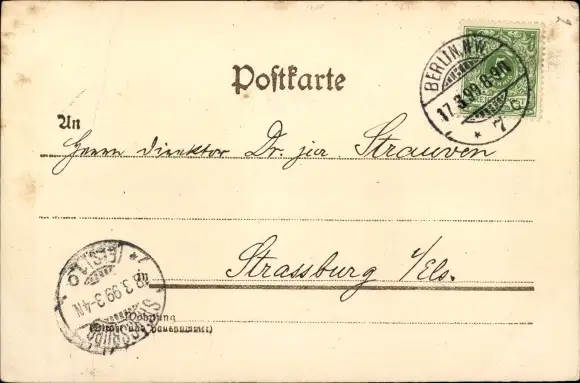 BERLIN, N.W.
17.3.99.8-9N
* 7
Postkarte
An
Herrn Direktor Dr. jur Strauven
Strassburg i/Els.
in
STRASSBURG
(ELS.)
18.3.99.3-4N
Wohnung
(Straße und Hausnummer)